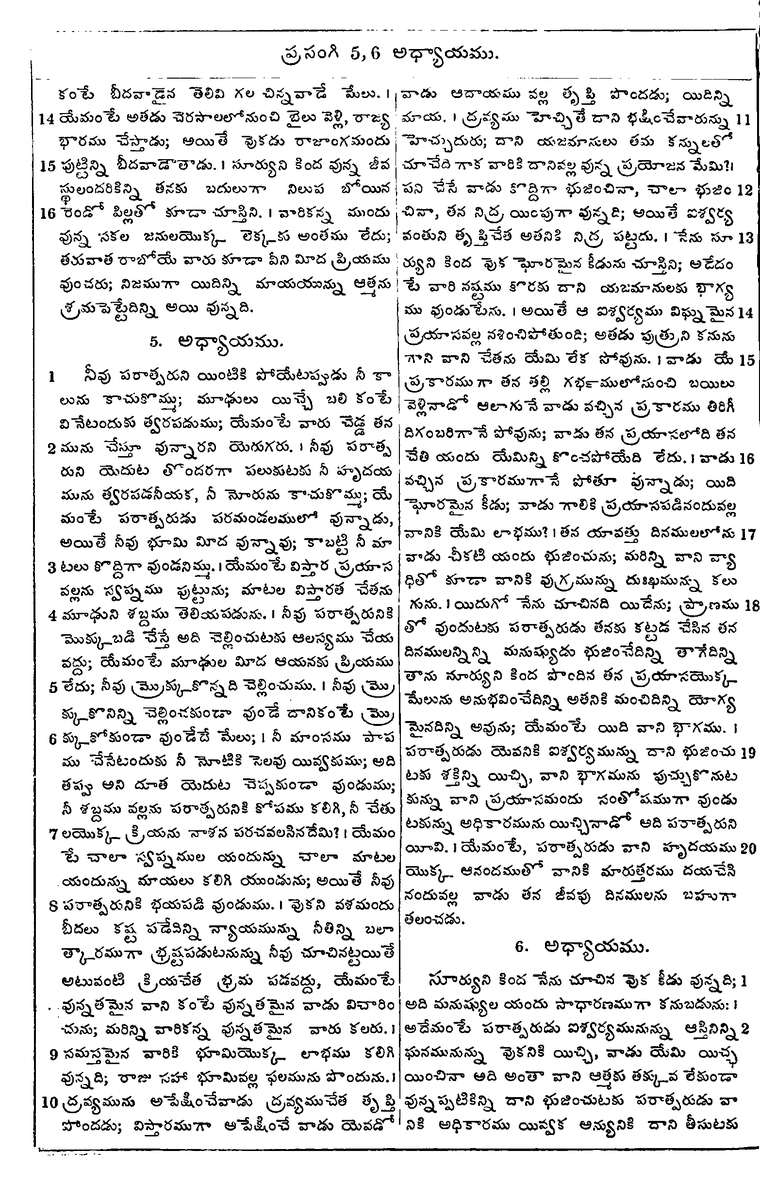 ప్రసంగి 5, 6 అధ్యాయము.
కంటే బీదవాడైన తెలివి గల చిన్నవాడే మేలు. ।
14 యేమంటే అతడు చెరసాలలోనుంచి బైలు వెళ్లి, రాజ్య
భారము చేస్తాడు; అయితే వుకడు రాజాంగమందు
15 పుట్టిన్ని బీదవాడౌతాడు. । సూర్యుని కింద వున్న జీవ
స్థులందరికిన్ని తనకు బదులుగా నిలుప బోయిన
16 రెండో పిల్లతో కూడా చూస్తిని. । వారికన్న ముందు
వున్న సకల జనులయొక్క లెక్కకు అంతము లేదు;
తరువాత రాబోయే వారు కూడా వీని మీద ప్రియము
వుంచరు; నిజముగా యిదిన్ని మాయయున్ను ఆత్మను
శ్రమపెట్టేదిన్ని అయి వున్నది.
5. అధ్యాయము.
1 నీవు పరాత్పరుని యింటికి పోయేటప్పుడు నీ కా
లును కాచుకొమ్ము; మూఢులు యిచ్చే బలి కంటే
వినేటందుకు త్వరపడుము; యేమంటే వారు చెడ్డ తన
2 మును చేస్తూ వున్నారని యెరుగరు. । నీవు పరాత్ప
రుని యెదుట తొందరగా పలుకుటకు నీ హృదయ
మును త్వరపడనీయక, నీ నోరును కాచుకొమ్ము; యే
మంటే పరాత్పరుడు పరమండలములో వున్నాడు,
అయితే నీవు భూమి మీద వున్నావు; కాబట్టి నీ మా
3 టలు కొద్దిగా వుండనిమ్ము. । యేమంటే విస్తార ప్రయాస
వల్లను స్వప్నము పుట్టును; మాటల విస్తారత చేతను
4 మూఢుని శబ్దము తెలియపడును. । నీవు పరాత్పరునికి
మొక్కుబడి చేస్తే అది చెల్లించుటకు ఆలస్యము చేయ
వద్దు; యేమంటే మూఢుల మీద ఆయనకు ప్రియము
5 లేదు; నీవు మ్రొక్కుకొన్నది చెల్లించుము. । నీవు మ్రొ
క్కుకొనిన్ని చెల్లించకుండా వుండే దానికంటే మ్రొ
6 క్కుకోకుండా వుండేదే మేలు; । నీ మాంసము పాప
ము చేసేటందుకు నీ నోటికి సెలవు యివ్వకుము; అది
తప్పు అని దూత యెదుట చెప్పకుండా వుండుము;
నీ శబ్దము వల్లను పరాత్పరునికి కోపము కలిగి, నీ చేతు
7 లయొక్క క్రియను నాశన పరచవలసినదేమి? । యేమం
టే చాలా స్వప్నముల యందున్ను చాలా మాటల
యందున్ను మాయలు కలిగి యుండును; అయితే నీవు
8 పరాత్పరునికి భయపడి వుండుము. । వుకని వశమందు
బీదలు కష్ట పడేదిన్ని న్యాయమున్ను నీతిన్ని బలా
త్కారముగా భ్రష్టపడుటనున్ను నీవు చూచినట్టయితే
అటువంటి క్రియచేత భ్రమ పడవద్దు, యేమంటే
వున్నతమైన వాని కంటే వున్నతమైన వాడు విచారిం
చును; మరిన్ని వారికన్న వున్నతమైన వారు కలరు. ।
9 సమస్తమైన వారికి భూమియొక్క లాభము కలిగి
వున్నది; రాజు సహా భూమివల్ల ఫలమును పొందును. ।
10 ద్రవ్యమును అపేక్షించేవాడు ద్రవ్యముచేత తృప్తి
పొందడు; విస్తారముగా అపేక్షించే వాడు యెవడో
వాడు ఆదాయము వల్ల తృప్తి పొందడు; యిదిన్ని
మాయ. । ద్రవ్యము హెచ్చితే దాని భక్షించేవారున్ను 11
హెచ్చుదురు; దాని యజమానులు తమ కన్నులతో
చూచేది గాక వారికి దానివల్ల వున్న ప్రయోజన మేమి? ।
పని చేసే వాడు కొద్దిగా భుజించినా, చాలా భుజిం 12
చినా, తన నిద్ర యింపుగా వున్నది; అయితే ఐశ్వర్య
వంతుని తృప్తిచేత అతనికి నిద్ర పట్టదు. । నేను సూ 13
ర్యుని కింద వుక ఘోరమైన కీడును చూస్తిని; అదేదం
టే వారి నష్టము కొరకు దాని యజమానులకు భాగ్య
ము వుండుటేను. । అయితే ఆ ఐశ్వర్యము విఘ్నమైన 14
ప్రయాసవల్ల నశించిపోతుంది; అతడు పుత్రుని కనును
గాని వాని చేతను యేమి లేక పోవును. । వాడు యే 15
ప్రకారముగా తన తల్లి గర్భములోనుంచి బయిలు
వెళ్లినాడో ఆలాగునే వాడు వచ్చిన ప్రకారము తిరిగీ
దిగంబరిగానే పోవును; వాడు తన ప్రయాసలోది తన
చేతి యందు యేమిన్ని కొంచపోయేది లేదు. । వాడు 16
వచ్చిన ప్రకారముగానే పోతూ వున్నాడు; యిది
ఘోరమైన కీడు; వాడు గాలికి ప్రయాసపడినందువల్ల
వానికి యేమి లాభము? । తన యావత్తు దినములలోను 17
వాడు చీకటి యందు భుజించును; మరిన్ని వాని వ్యా
ధితో కూడా వానికి వుగ్రమున్ను దుఃఖమున్ను కలు
గును. । యిదుగో నేను చూచినది యిదేను; ప్రాణము 18
తో వుండుటకు పరాత్పరుడు తనకు కట్టడ చేసిన తన
దినములన్నిన్ని మనుష్యుడు భుజించేదిన్ని తాగేదిన్ని
తాను సూర్యుని కింద పొందిన తన ప్రయాసయొక్క
మేలును అనుభవించేదిన్ని అతనికి మంచిదిన్ని యోగ్య
మైనదిన్ని అవును; యేమంటే యిది వాని భాగము. ।
పరాత్పరుడు యెవనికి ఐశ్వర్యమున్ను దాని భుజించు 19
టకు శక్తిన్ని యిచ్చి, వాని భాగమును పుచ్చుకొనుట
కున్ను వాని ప్రయాసమందు సంతోషముగా వుండు
టకున్ను అధికారమును యిచ్చినాడో అది పరాత్పరుని
యీవి. । యేమంటే, పరాత్పరుడు వాని హృదయము 20
యొక్క ఆనందముతో వానికి మారుత్తరము దయచేసి
నందువల్ల వాడు తన జీవపు దినములను బహుగా
తలంచడు.
6. అధ్యాయము.
సూర్యుని కింద నేను చూచిన వుక కీడు వున్నది; 1
అది మనుష్యుల యందు సాధారణముగా కనుబడును: ।
అదేమంటే పరాత్పరుడు ఐశ్వర్యమునున్ను ఆస్తినిన్ని 2
ఘనమునున్ను వుకనికి యిచ్చి, వాడు యేమి యిచ్ఛ
యించినా అది అంతా వాని ఆత్మకు తక్కువ లేకుండా
వున్నప్పటికిన్ని దాని భుజించుటకు పరాత్పరుడు వా
నికి అధికారము యివ్వక అన్యునికి దాని తీసుటకు